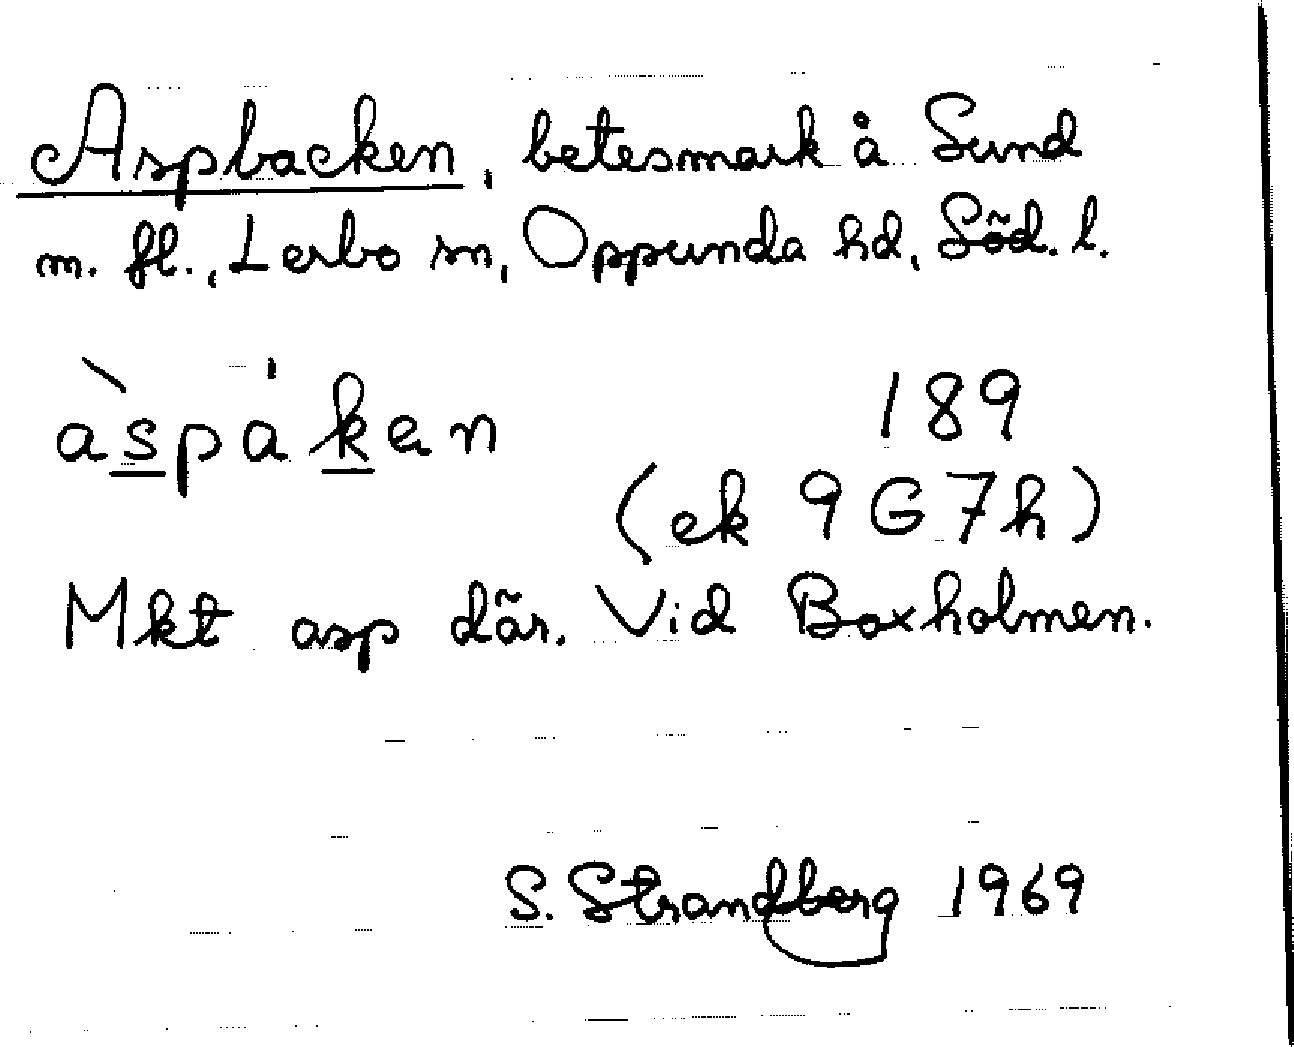 Aspbacken, betesmark å Sund
m. fl., Lerbo sn, Oppunda hd, Söd. l.
àspáken 189
(ek 9G7h)
Mkt asp där. Vid Boxholmen.
S. Strandberg 1969